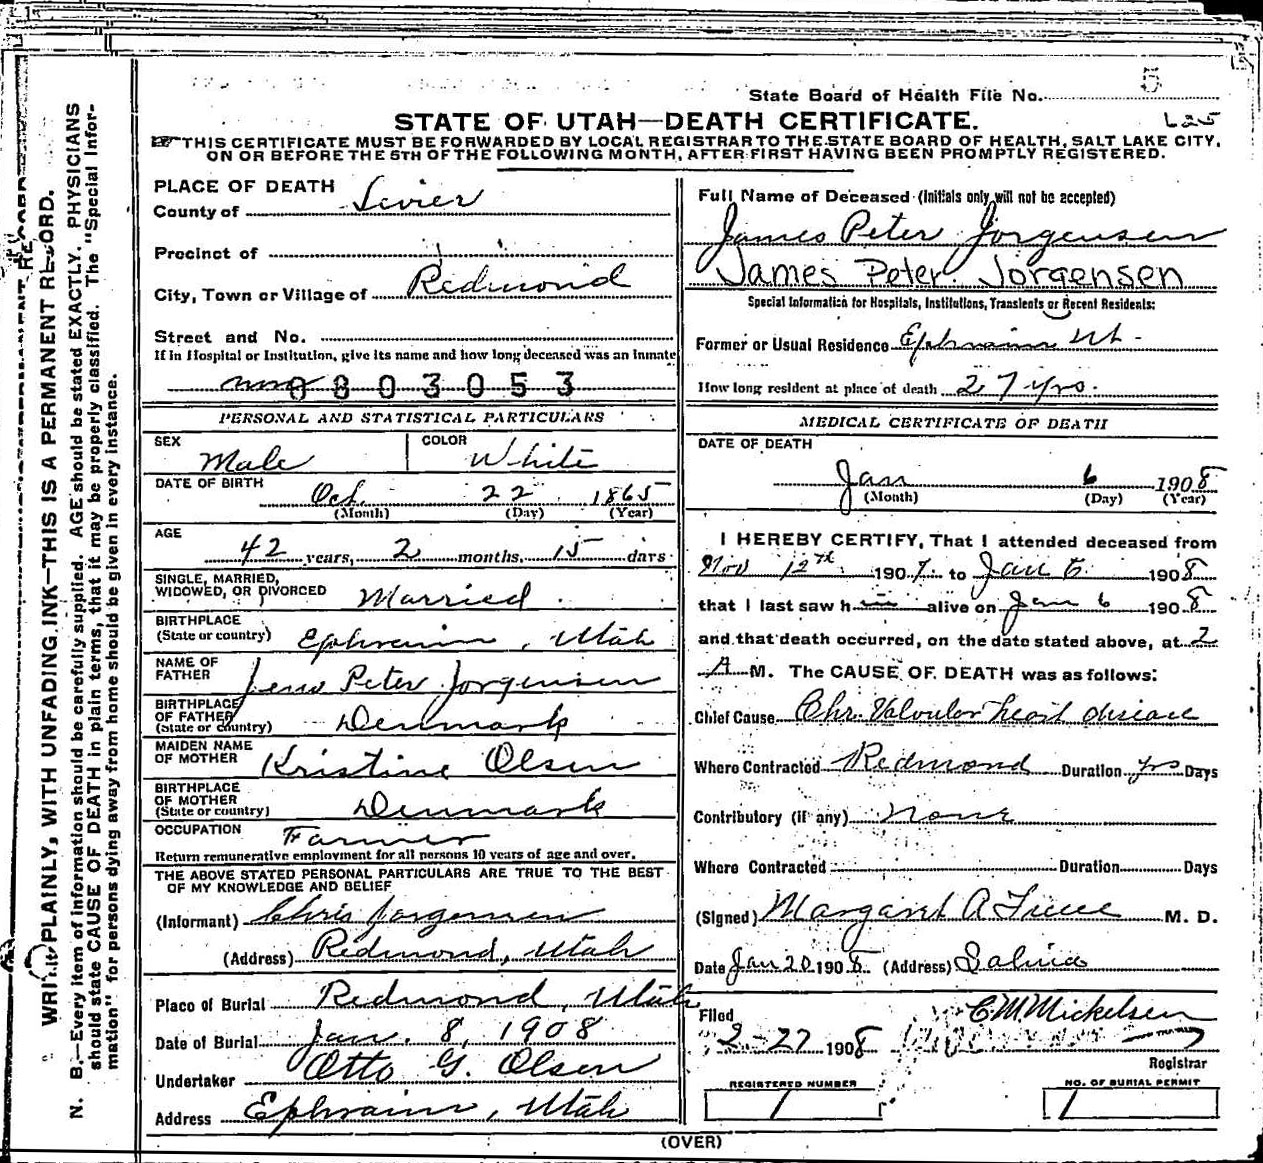 State Board of Health File No. 5
STATE OF UTAH—DEATH CERTIFICATE.
THIS CERTIFICATE MUST BE FORWARDED BY LOCAL REGISTRAR TO THE STATE BOARD OF HEALTH, SALT LAKE CITY,
ON OR BEFORE THE 5TH OF THE FOLLOWING MONTH, AFTER FIRST HAVING BEEN PROMPTLY REGISTERED.
WRITE PLAINLY, WITH UNFADING INK—THIS IS A PERMANENT RECORD.
N. B.—Every item of information should be carefully supplied. AGE should be stated EXACTLY. PHYSICIANS
should state CAUSE OF DEATH in plain terms, that it may be properly classified. The "Special Infor-
mation" for persons dying away from home should be given in every instance.
PLACE OF DEATH
County of Sevier
Precinct of
City, Town or Village of Redmond
Street and No.
If in Hospital or Institution, give its name and how long deceased was an Inmate
0803053
PERSONAL AND STATISTICAL PARTICULARS
SEX Male COLOR White
DATE OF BIRTH Oct. 22 1865
(Month) (Day) (Year)
AGE 42 years, 2 months, 15 days
SINGLE, MARRIED,
WIDOWED, OR DIVORCED Married
BIRTHPLACE
(State or country) Ephraim, Utah
NAME OF
FATHER Jens Peter Jorgensen
BIRTHPLACE
OF FATHER
(State or country) Denmark
MAIDEN NAME
OF MOTHER Kristine Olsen
BIRTHPLACE
OF MOTHER
(State or country) Denmark
OCCUPATION Farmer
Return remunerative employment for all persons 10 years of age and over.
THE ABOVE STATED PERSONAL PARTICULARS ARE TRUE TO THE BEST
OF MY KNOWLEDGE AND BELIEF
(Informant) Chris Jorgensen
(Address) Redmond, Utah
Place of Burial Redmond, Utah
Date of Burial Jan. 8, 1908
Undertaker Otto G. Olsen
Address Ephraim, Utah
Full Name of Deceased (Initials only will not be accepted)
James Peter Jorgensen
James Peter Jorgensen
Special Information for Hospitals, Institutions, Transients or Recent Residents:
Former or Usual Residence Ephraim Ut.
How long resident at place of death 27 yrs.
MEDICAL CERTIFICATE OF DEATH
DATE OF DEATH
Jan 6 1908
(Month) (Day) (Year)
I HEREBY CERTIFY, That I attended deceased from
Nov 12th 1907 to Jan 6 1908
that I last saw him alive on Jan 6 1908
and that death occurred, on the date stated above, at 2
A M. The CAUSE OF DEATH was as follows:
Chief Cause Chr. Valvular heart disease
Where Contracted Redmond Duration yrs Days
Contributory (if any) None
Where Contracted Duration Days
(Signed) Margaret A M. D.
Date Jan 20 1908 (Address) Salina
Filed C. M. Mickelsen
2-27 1908
Registrar
REGISTERED NUMBER 1
NO. OF BURIAL PERMIT 1
(OVER)